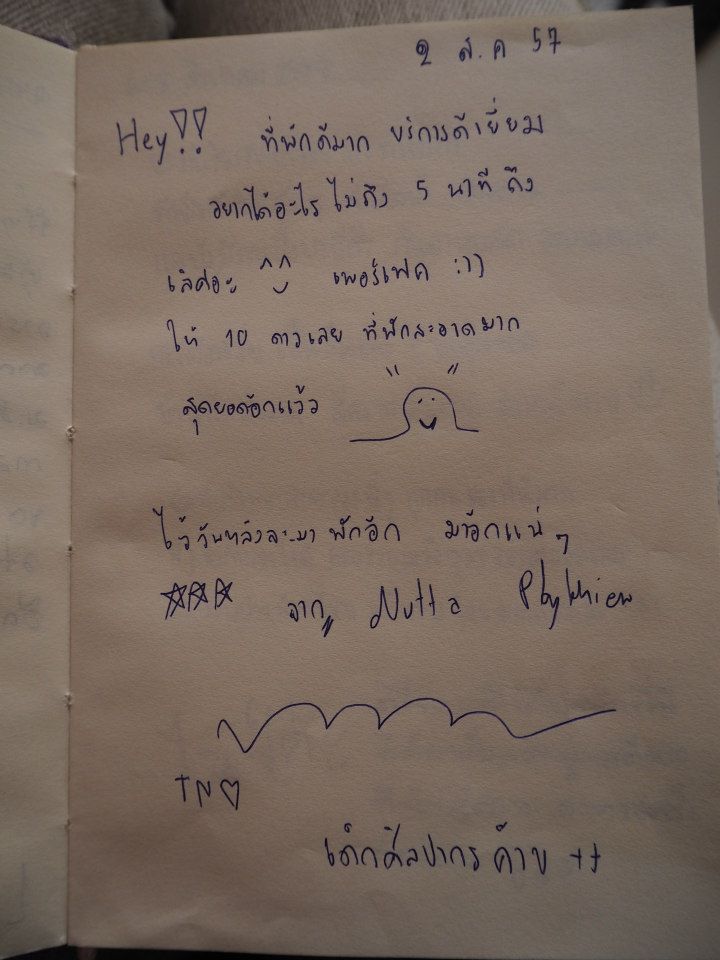 2 ส.ค 57
Hey!! ที่พักดีมาก บริการดีเยี่ยม
อยากได้อะไร ไม่ถึง 5 นาที ถึง
เลิศอะ ^^ เพอร์เฟค :))
ให้ 10 ดาวเลย ที่พักสะอาดมาก
สุดยอดอีกแว้ว
ไว้วันหลังจะมาพักอีก มาอีกแน่ๆ
จาก Nutta
เด็กศิลปากรค้าบ ++